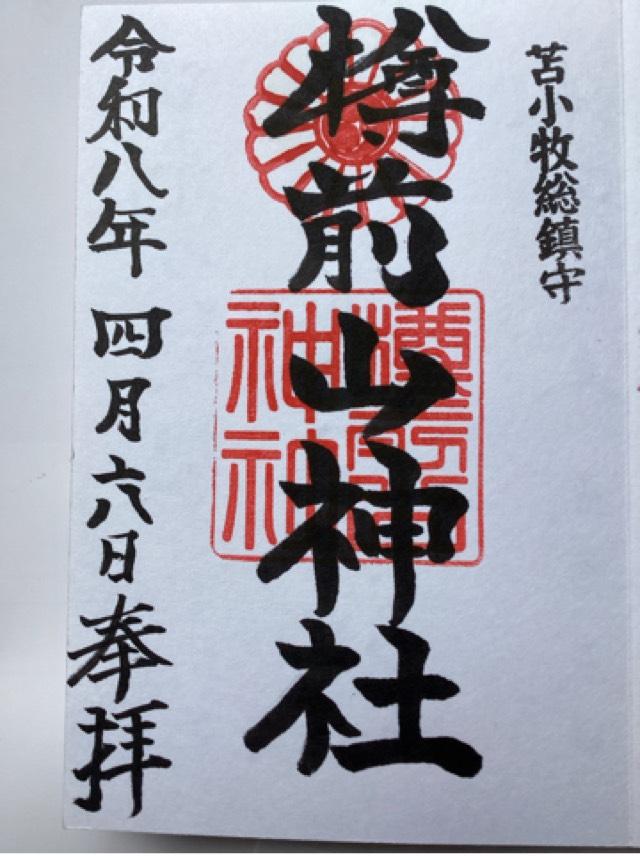 苫小牧総鎮守
樽前山神社
令和八年四月六日奉拝